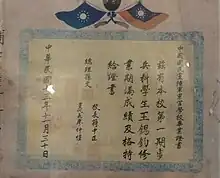 中國國民黨陸軍軍官學校畢業證書
茲有本校第一期步
兵科學生王錫鈞修
業期滿成績及格特
給證書
總理孫文
校長蔣中正
黨代表廖仲愷
中華民國十三年十一月三十日